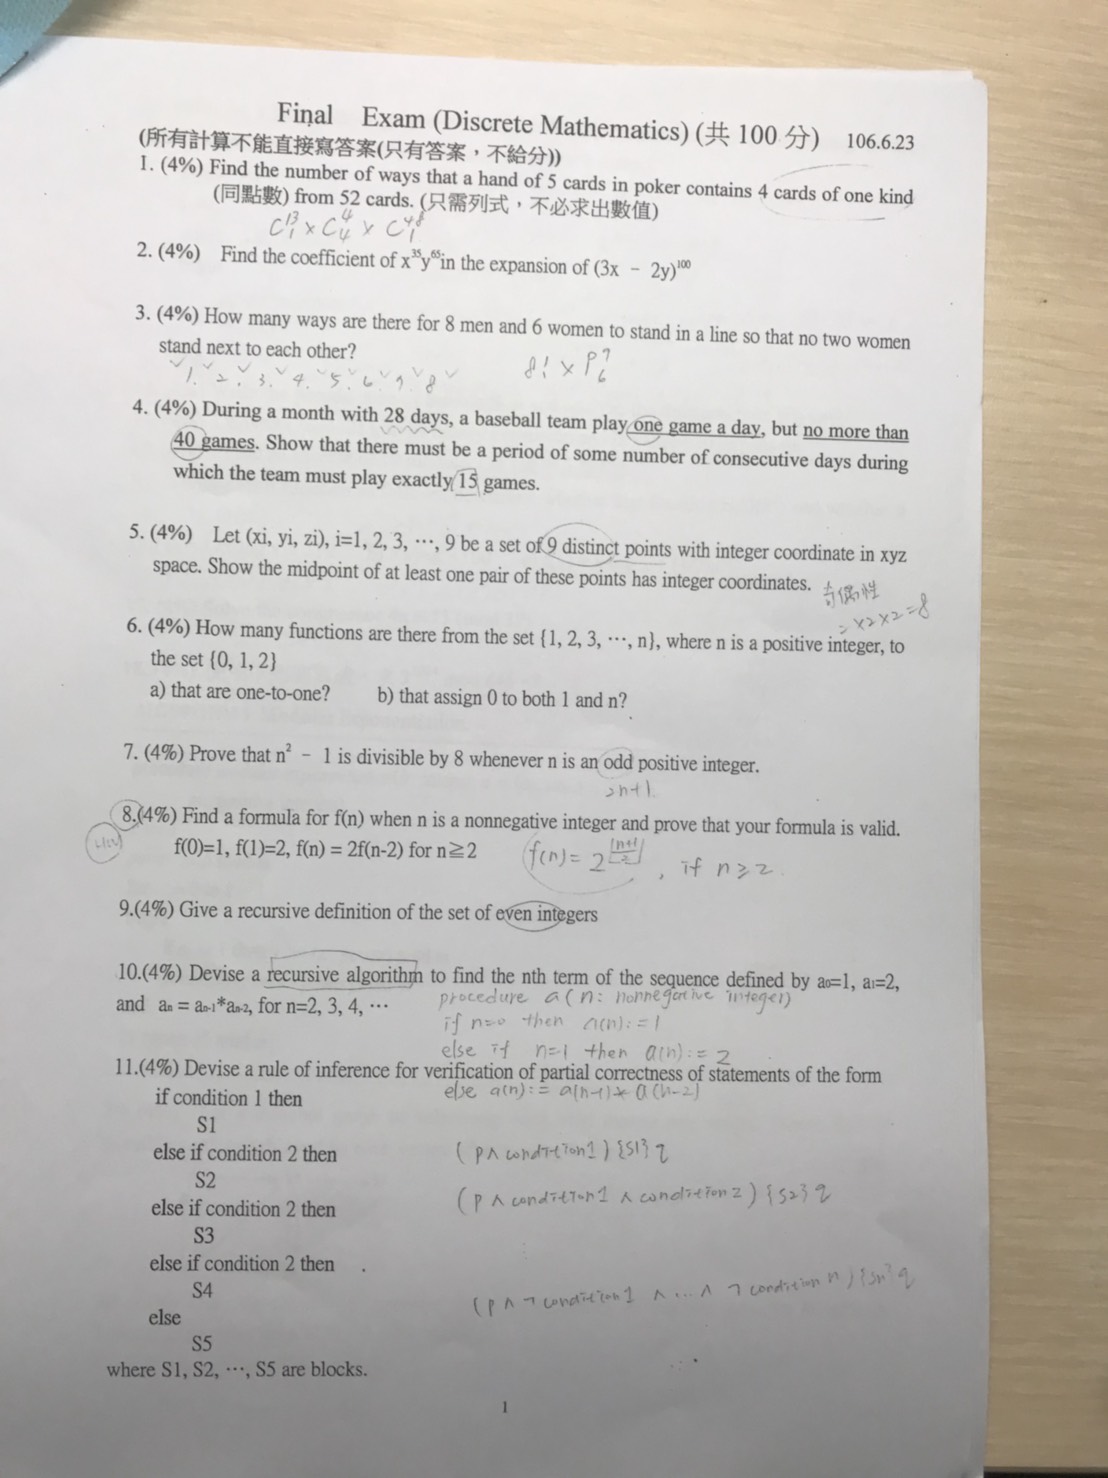 Final Exam (Discrete Mathematics) (共 100 分) 106.6.23
(所有計算不能直接寫答案(只有答案，不給分))
1. (4%) Find the number of ways that a hand of 5 cards in poker contains 4 cards of one kind
(同點數) from 52 cards. (只需列式，不必求出數值)
C¹³₁ × C⁴₄ × C⁴⁸₁
2. (4%) Find the coefficient of x³⁵y⁶⁵in the expansion of (3x － 2y)¹⁰⁰
3. (4%) How many ways are there for 8 men and 6 women to stand in a line so that no two women
stand next to each other?
8! × P⁹₆
1. 2. 3. 4. 5. 6. 7. 8
4. (4%) During a month with 28 days, a baseball team play one game a day, but no more than
40 games. Show that there must be a period of some number of consecutive days during
which the team must play exactly 15 games.
5. (4%) Let (xi, yi, zi), i=1, 2, 3, ⋯, 9 be a set of 9 distinct points with integer coordinate in xyz
space. Show the midpoint of at least one pair of these points has integer coordinates.
奇偶性
=×2×2=8
6. (4%) How many functions are there from the set {1, 2, 3, ⋯, n}, where n is a positive integer, to
the set {0, 1, 2}
a) that are one-to-one? b) that assign 0 to both 1 and n?
7. (4%) Prove that n² － 1 is divisible by 8 whenever n is an odd positive integer.
2n+1
8.(4%) Find a formula for f(n) when n is a nonnegative integer and prove that your formula is valid.
f(0)=1, f(1)=2, f(n) = 2f(n-2) for n≧2
f(n) = 2^⌊(n+1)/2⌋, if n ≥ 2.
9.(4%) Give a recursive definition of the set of even integers
10.(4%) Devise a recursive algorithm to find the nth term of the sequence defined by a₀=1, a₁=2,
and aₙ = aₙ₋₁*aₙ₋₂, for n=2, 3, 4, ⋯
procedure a(n: nonnegative integer)
if n=0 then a(n):=1
else if n=1 then a(n):= 2
else a(n):= a(n-1)* a(n-2)
11.(4%) Devise a rule of inference for verification of partial correctness of statements of the form
if condition 1 then
S1
else if condition 2 then
(p∧condition1){S1}q
S2
(p∧condition1∧condition2){S2}q
else if condition 2 then
S3
else if condition 2 then
S4
(p∧¬condition1 ∧...∧ ¬condition n){Sn}q
else
S5
where S1, S2, ⋯, S5 are blocks.
1